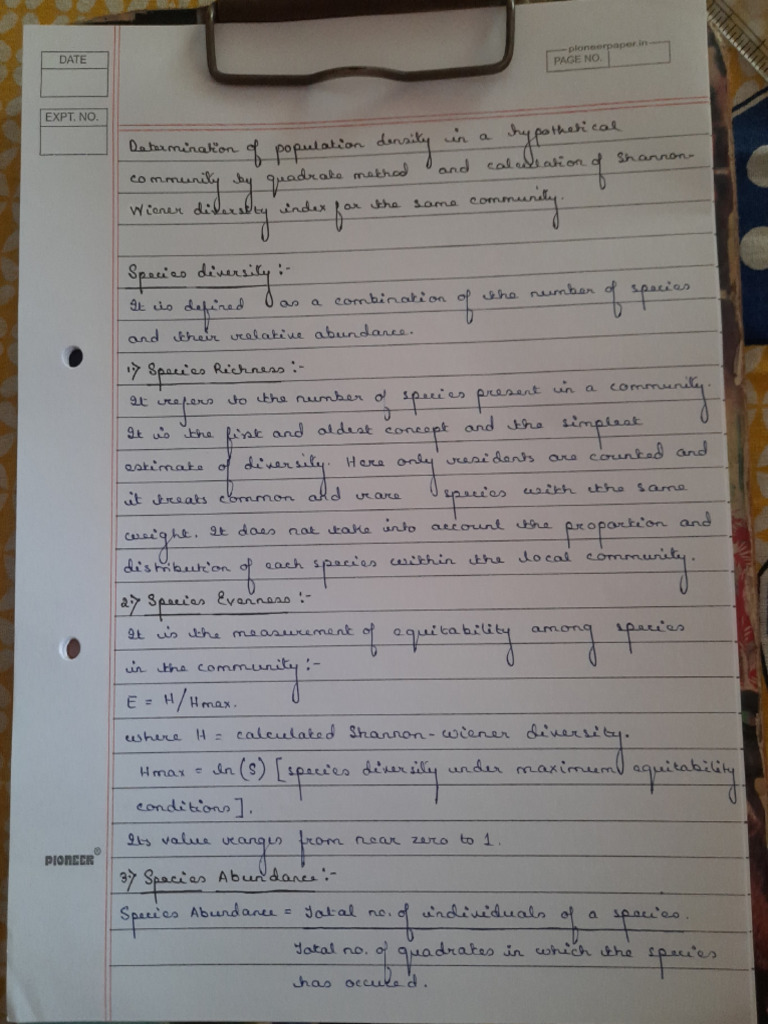 pioneerpaper.in
DATE
PAGE NO.
EXPT. NO.
Determination of population density in a hypothetical
community by quadrate method and calculation of Shannon-
Wiener diversity index for the same community.
Species diversity :-
It is defined as a combination of the number of species
and their relative abundance.
1) Species Richness :-
It refers to the number of species present in a community.
It is the first and oldest concept and the simplest
estimate of diversity. Here only residents are counted and
it treats common and rare species with the same
weight. It does not take into account the proportion and
distribution of each species within the local community.
2) Species Evenness :-
It is the measurement of equitability among species
in the community :-
E = H/Hmax.
where H = calculated Shannon-wiener diversity.
Hmax = ln(S) [species diversity under maximum equitability
conditions].
Its value ranges from near zero to 1.
PIONEER®
3) Species Abundance :-
Species Abundance = Total no. of individuals of a species.
Total no. of quadrates in which the species
has occured.